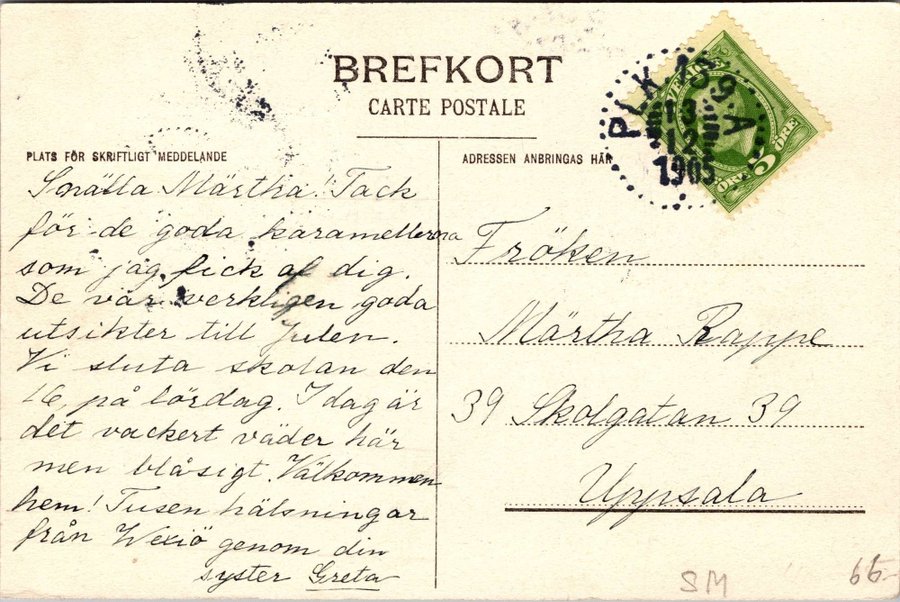 BREFKORT
CARTE POSTALE
PLATS FÖR SKRIFTLIGT MEDDELANDE
Snälla Märtha! Tack
för de goda karamellerna
som jag fick af dig.
De var verkligen goda
utsikter till Julen.
Vi sluta skolan den
16, på lördag. I dag är
det vackert väder här
men blåsigt. Välkommen
hem! Tusen hälsningar
från Wexiö genom din
syster Greta
ADRESSEN ANBRINGAS HÄR
PLK 159.A
13
12
1905
SVERIGE
5 ÖRE
Fröken
Märtha Rappe
39 Skolgatan 39
Uppsala
SM
66-